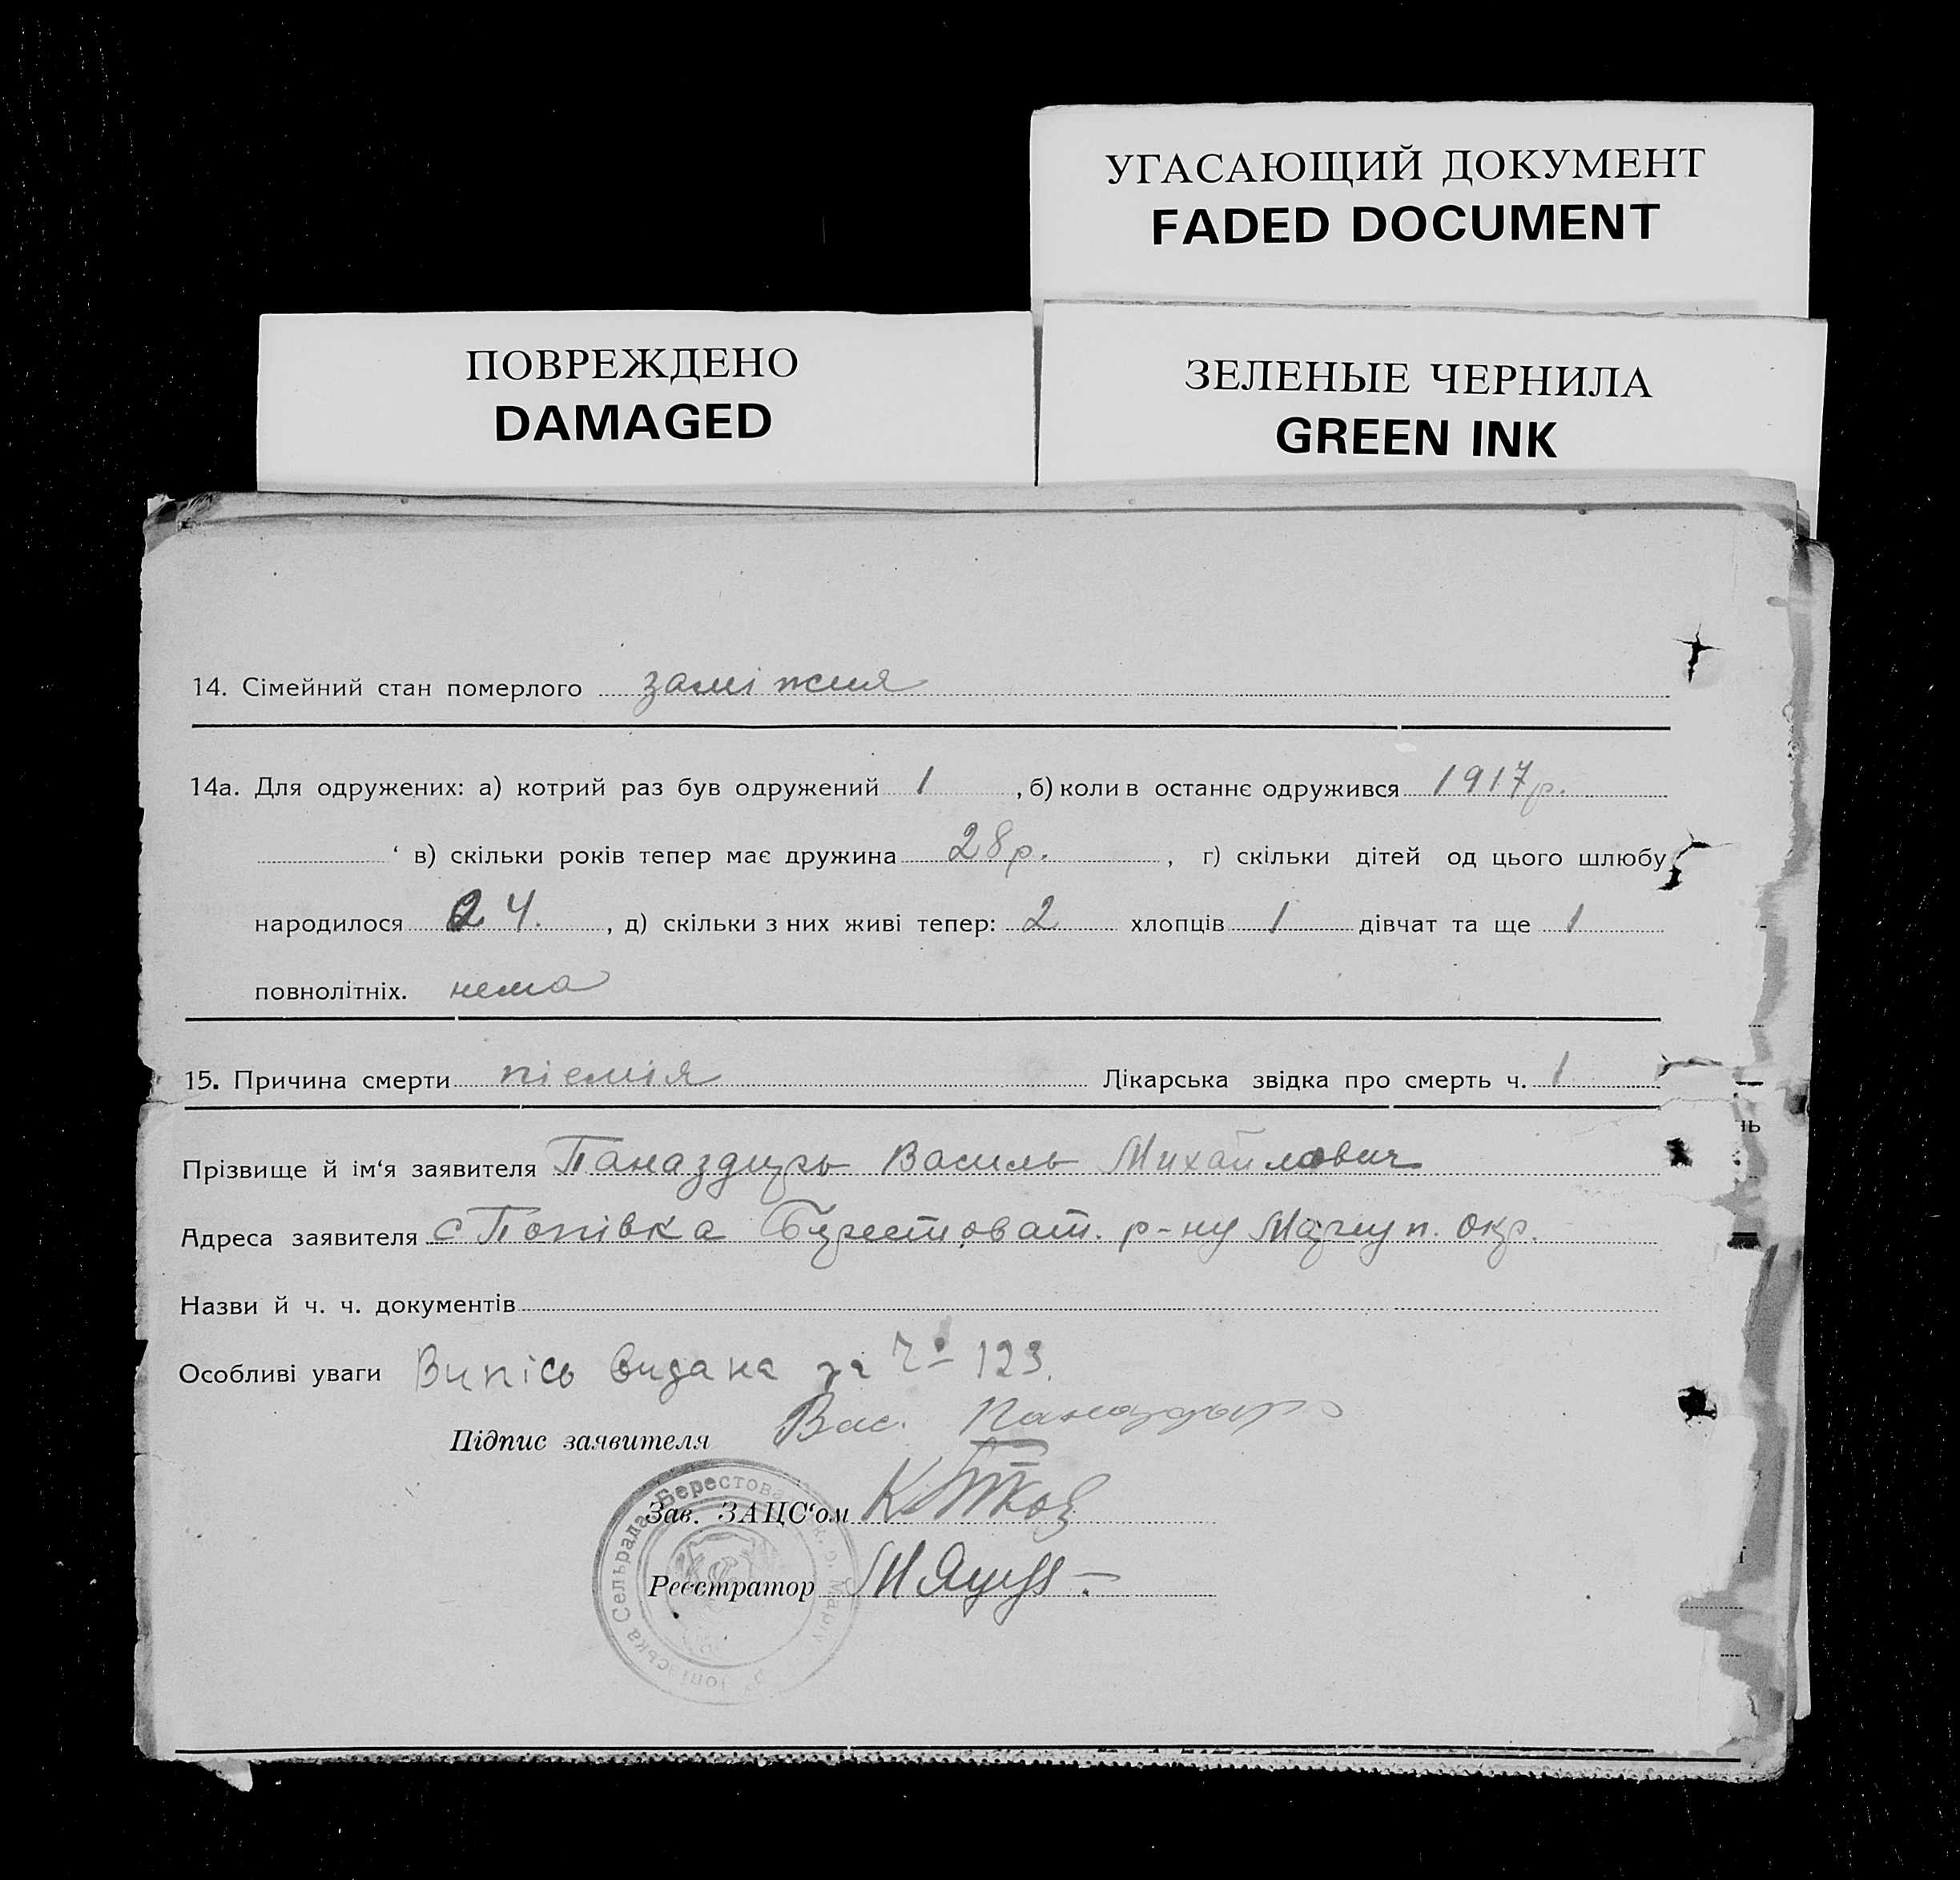 УГАСАЮЩИЙ ДОКУМЕНТ
FADED DOCUMENT
ПОВРЕЖДЕНО
DAMAGED
ЗЕЛЕНЫЕ ЧЕРНИЛА
GREEN INK
14. Сімейний стан померлого заміжня
14а. Для одружених: а) котрий раз був одружений 1 , б) коли в останнє одружився 1917 р.
в) скільки років тепер має дружина 28 р. , г) скільки дітей од цього шлюбу
народилося 4. , д) скільки з них живі тепер: 2 хлопців 1 дівчат та ще 1
повнолітніх. нема
15. Причина смерти піемія Лікарська звідка про смерть ч. 1
Прізвище й ім‘я заявителя Паназдирь Василь Михайлович
Адреса заявителя с Попівка р-ну Маріуп. окр.
Назви й ч. ч. документів
Особливі уваги Випісь видана за Ч° 123.
Підпис заявителя Вас. Паназдырь
Зав. ЗАЦС‘ом
Реєстратор
Сельрада, Берестова